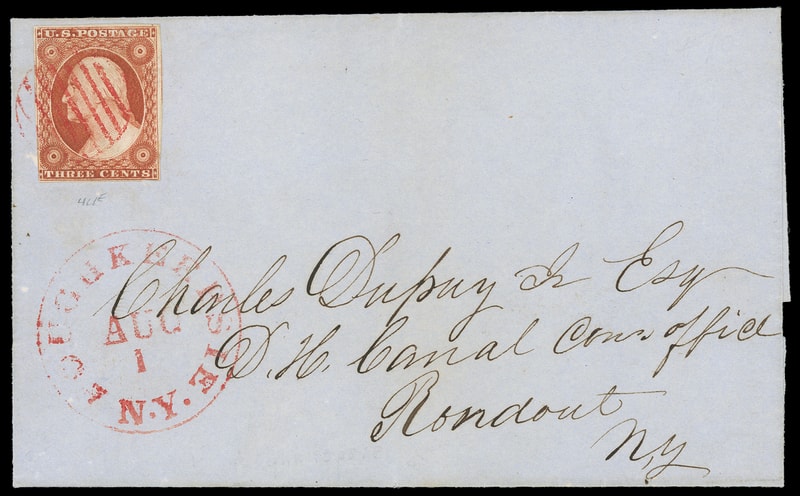 U.S. POSTAGE
THREE CENTS
POUGHKEEPSIE
AUG
1
N.Y.
Charles Dupuy Jr Esqr
D. H. Canal Cos office
Rondout
Ny